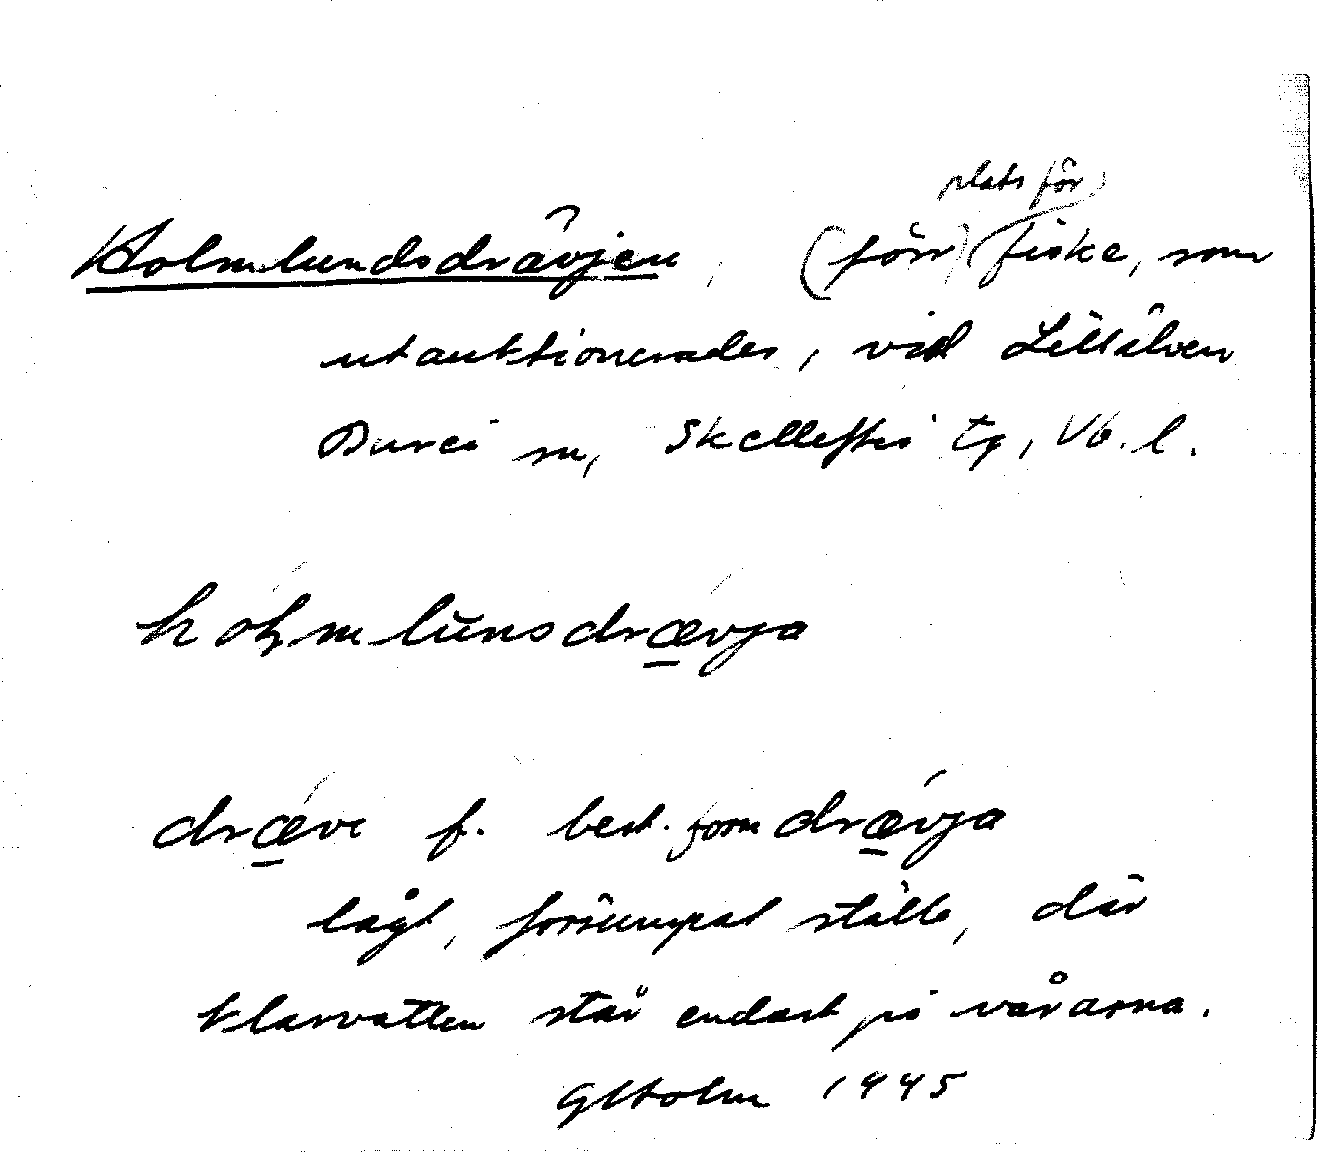 plats för
Holmlundsdrävjen, (förr) fiske, som
utauktionerades, vid Lillälven
Bureå sn, Skellefteå tg, Vb. l.
hóḷmlŭnsdrǽ̱vja
drǽ̱ve f. best. form drǽ̱vja
lågt, försumpat ställe, där
klarvatten står endast på vårarna.
GHolm 1945